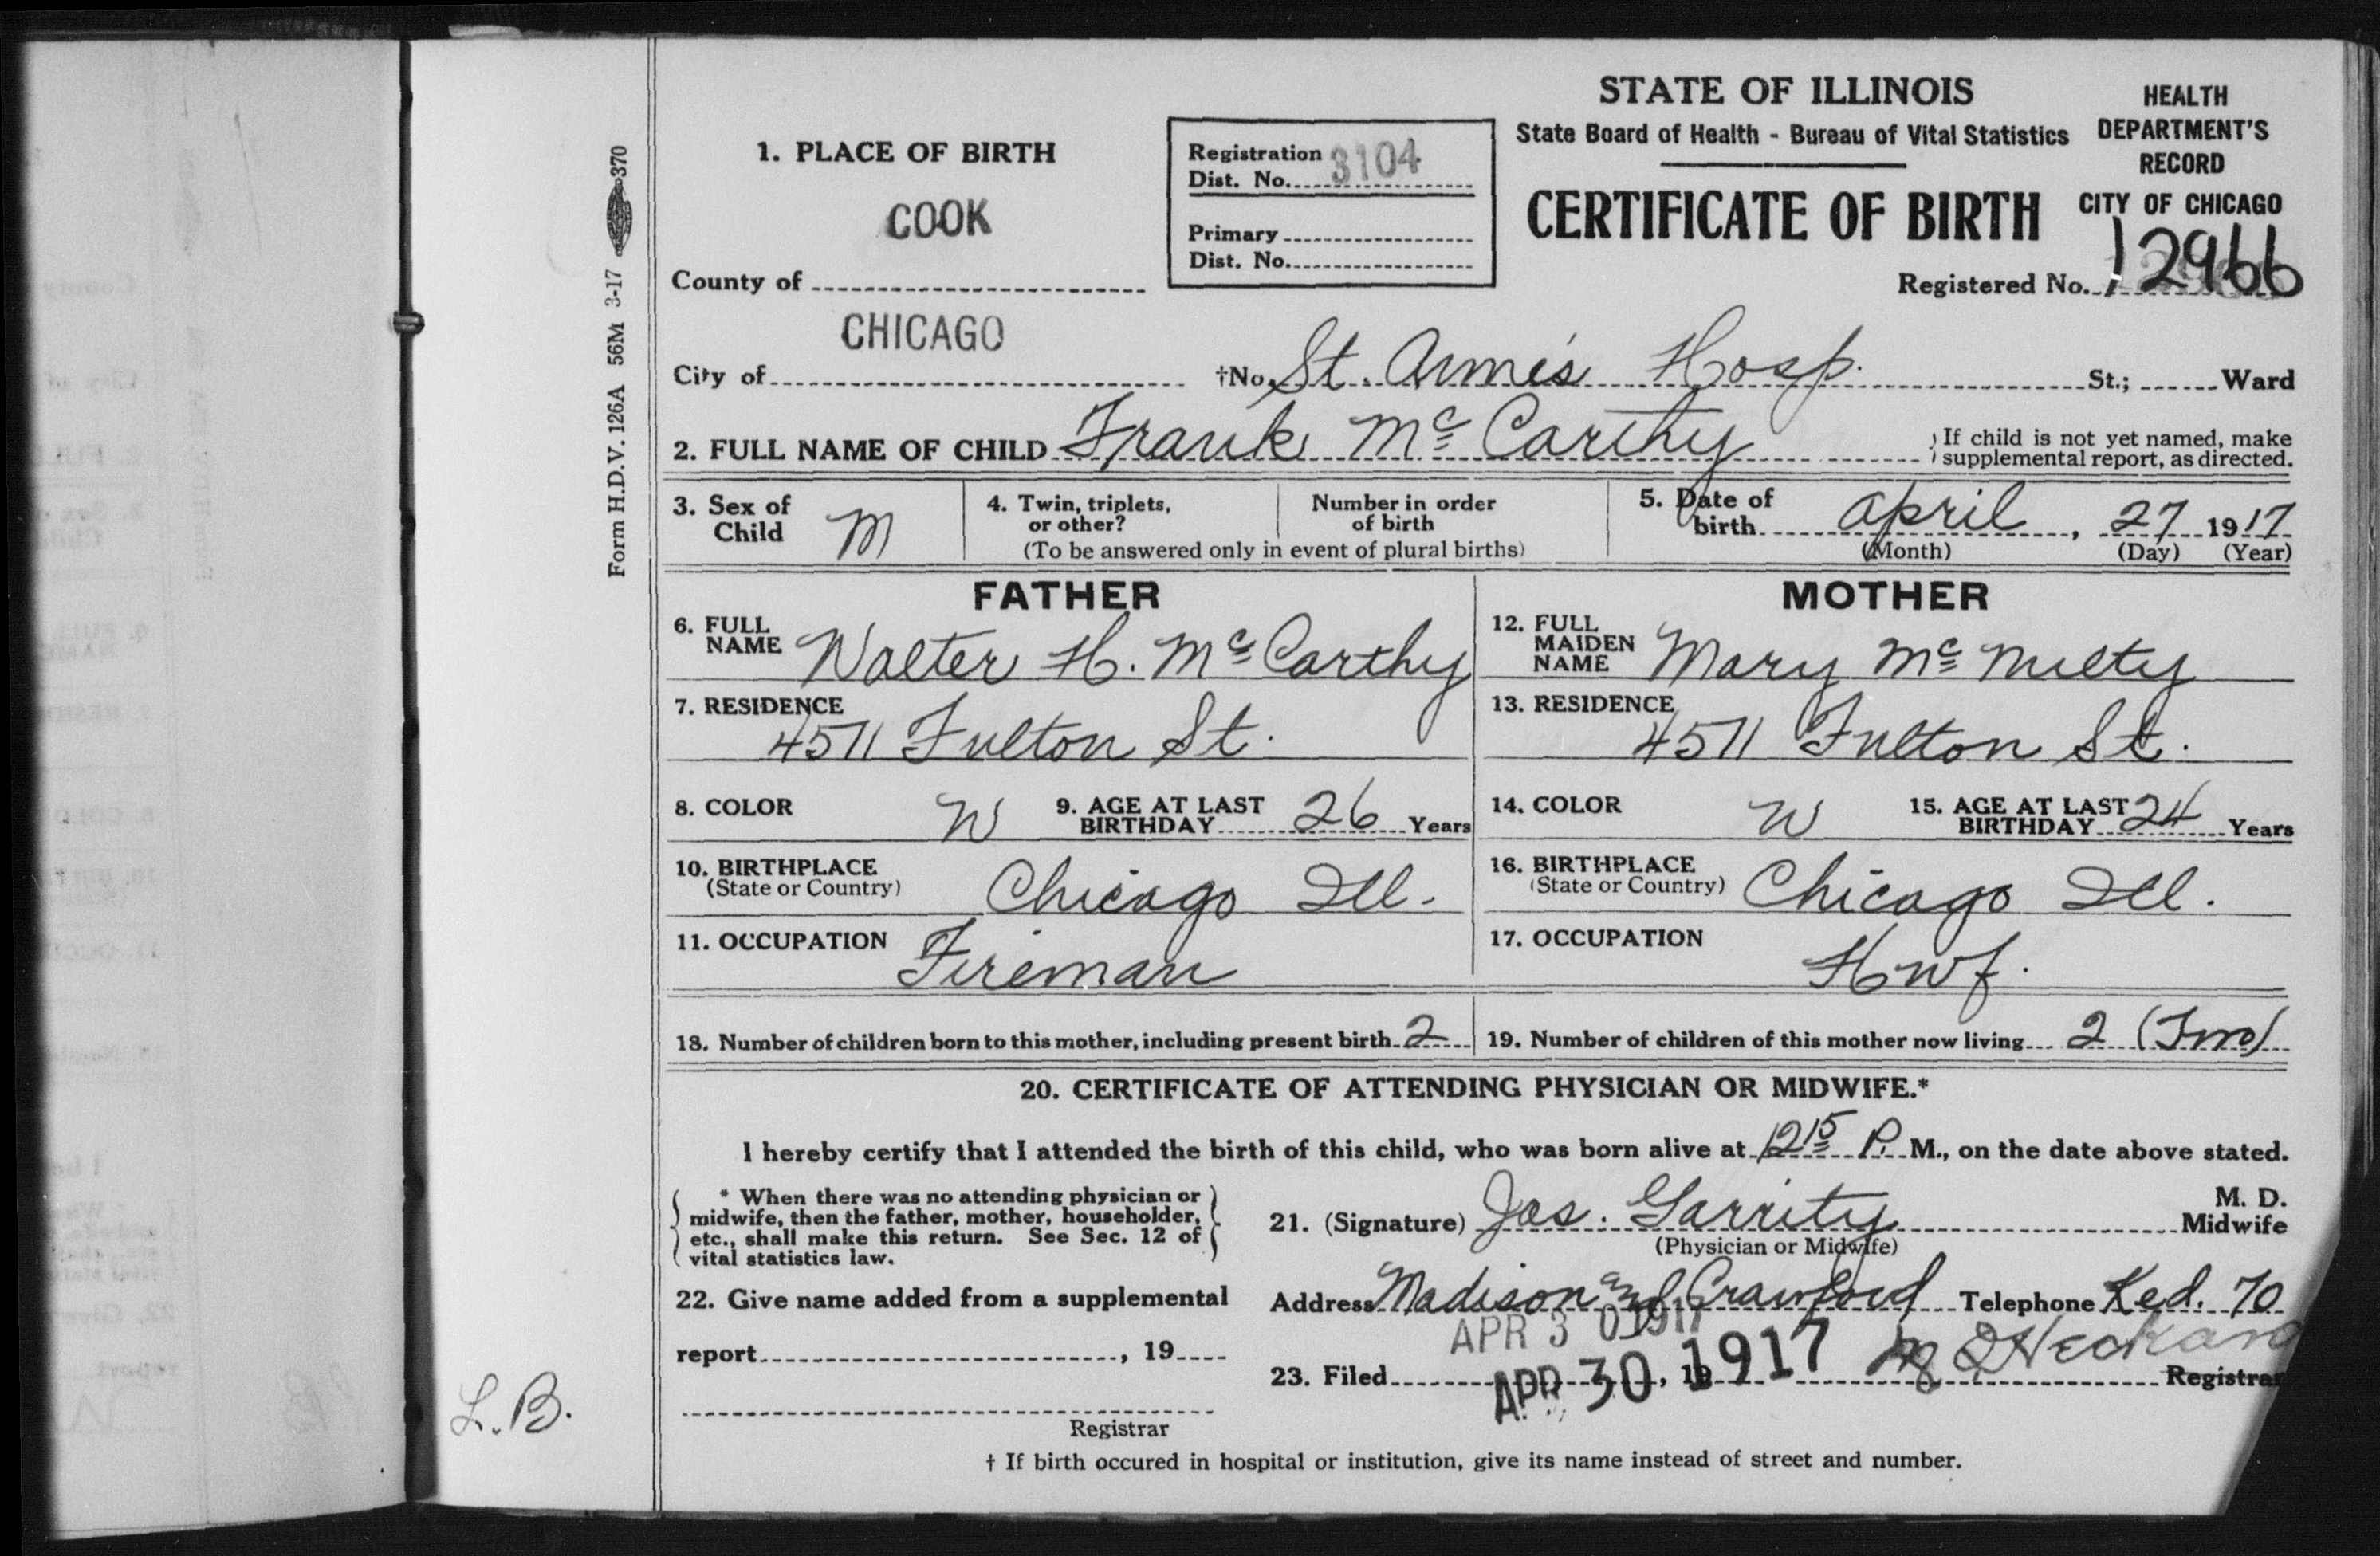 STATE OF ILLINOIS
State Board of Health - Bureau of Vital Statistics
CERTIFICATE OF BIRTH
HEALTH
DEPARTMENT'S
RECORD
CITY OF CHICAGO
Registered No. 12966
1. PLACE OF BIRTH
Registration
Dist. No. 3104
Primary
Dist. No.
COOK
County of
CHICAGO
City of †No. St. Anne's Hosp. St.; Ward
2. FULL NAME OF CHILD Frank McCarthy
If child is not yet named, make
supplemental report, as directed.
3. Sex of
Child M
4. Twin, triplets,
or other?
Number in order
of birth
(To be answered only in event of plural births)
5. Date of
birth April, 27 1917
(Month) (Day) (Year)
FATHER
6. FULL
NAME Walter H. McCarthy
7. RESIDENCE
4511 Fulton St.
8. COLOR W 9. AGE AT LAST
BIRTHDAY 26 Years
10. BIRTHPLACE
(State or Country) Chicago Ill.
11. OCCUPATION Fireman
MOTHER
12. FULL
MAIDEN
NAME Mary Mc Nulty
13. RESIDENCE
4511 Fulton St.
14. COLOR W 15. AGE AT LAST
BIRTHDAY 24 Years
16. BIRTHPLACE
(State or Country) Chicago Ill.
17. OCCUPATION Hwf.
18. Number of children born to this mother, including present birth 2
19. Number of children of this mother now living 2 (Two)
20. CERTIFICATE OF ATTENDING PHYSICIAN OR MIDWIFE.*
I hereby certify that I attended the birth of this child, who was born alive at 12 15 P. M., on the date above stated.
* When there was no attending physician or
midwife, then the father, mother, householder,
etc., shall make this return. See Sec. 12 of
vital statistics law.
21. (Signature) Jas. Garrity M. D.
Midwife
(Physician or Midwife)
22. Give name added from a supplemental
report, 19
Registrar
Address Madison and Crawford Telephone Ked. 70
APR 30 1917
23. Filed APR 30, 1917 Registrar
† If birth occured in hospital or institution, give its name instead of street and number.
Form H.D.V. 126A 56M 3-17 370
L.B.